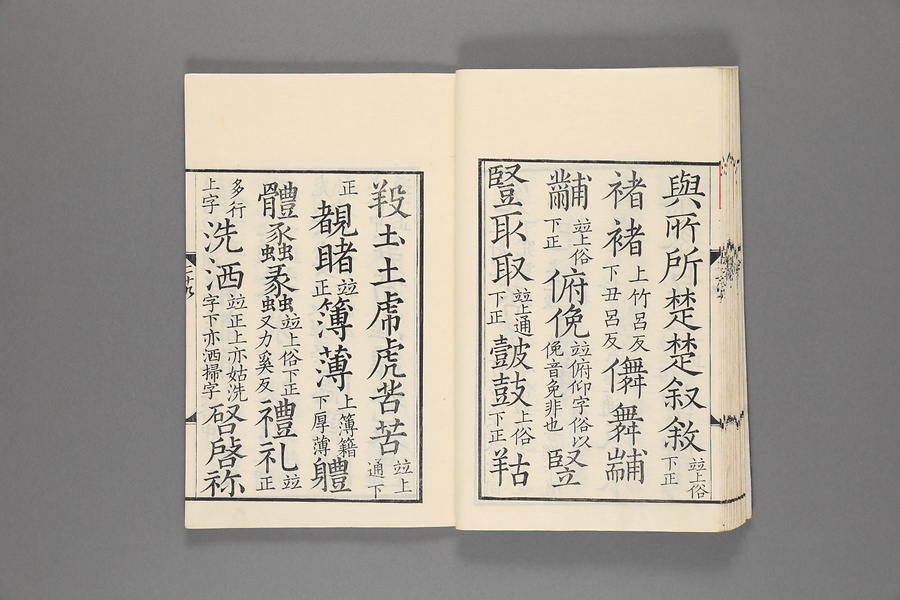 與所所楚楚叙敘並上俗下正
褚褚上竹呂反下丑呂反儛舞
黼並上俗下正俯俛並俯仰字俗以俛音免非也竪
豎取取並上通下正皷鼓上俗下正羖
羖土土虎虎苦苦並上通下
正覩睹並正簿薄上簿籍下厚薄軆
體蠡蠡並上俗下正又力奚反禮礼並正
多行上字洗洒並正上亦姑洗字下亦洒掃字啓啓祢